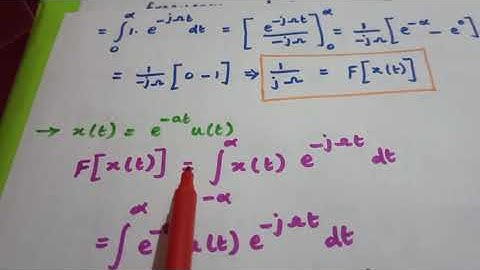 = ∫₀^∞ 1. e^{-jΩt} dt = [ e^{-jΩt} / -jΩ ]₀^∞ = 1/-jΩ [ e^{-∞} - e^{0} ]
= 1/-jΩ [ 0 - 1 ] ⇒ 1/jΩ = F[x(t)]
→ x(t) = e^{-at} u(t)
F[x(t)] = ∫_{-∞}^{∞} x(t) e^{-jΩt} dt
= ∫^∞ u(t) e^{-jΩt} dt